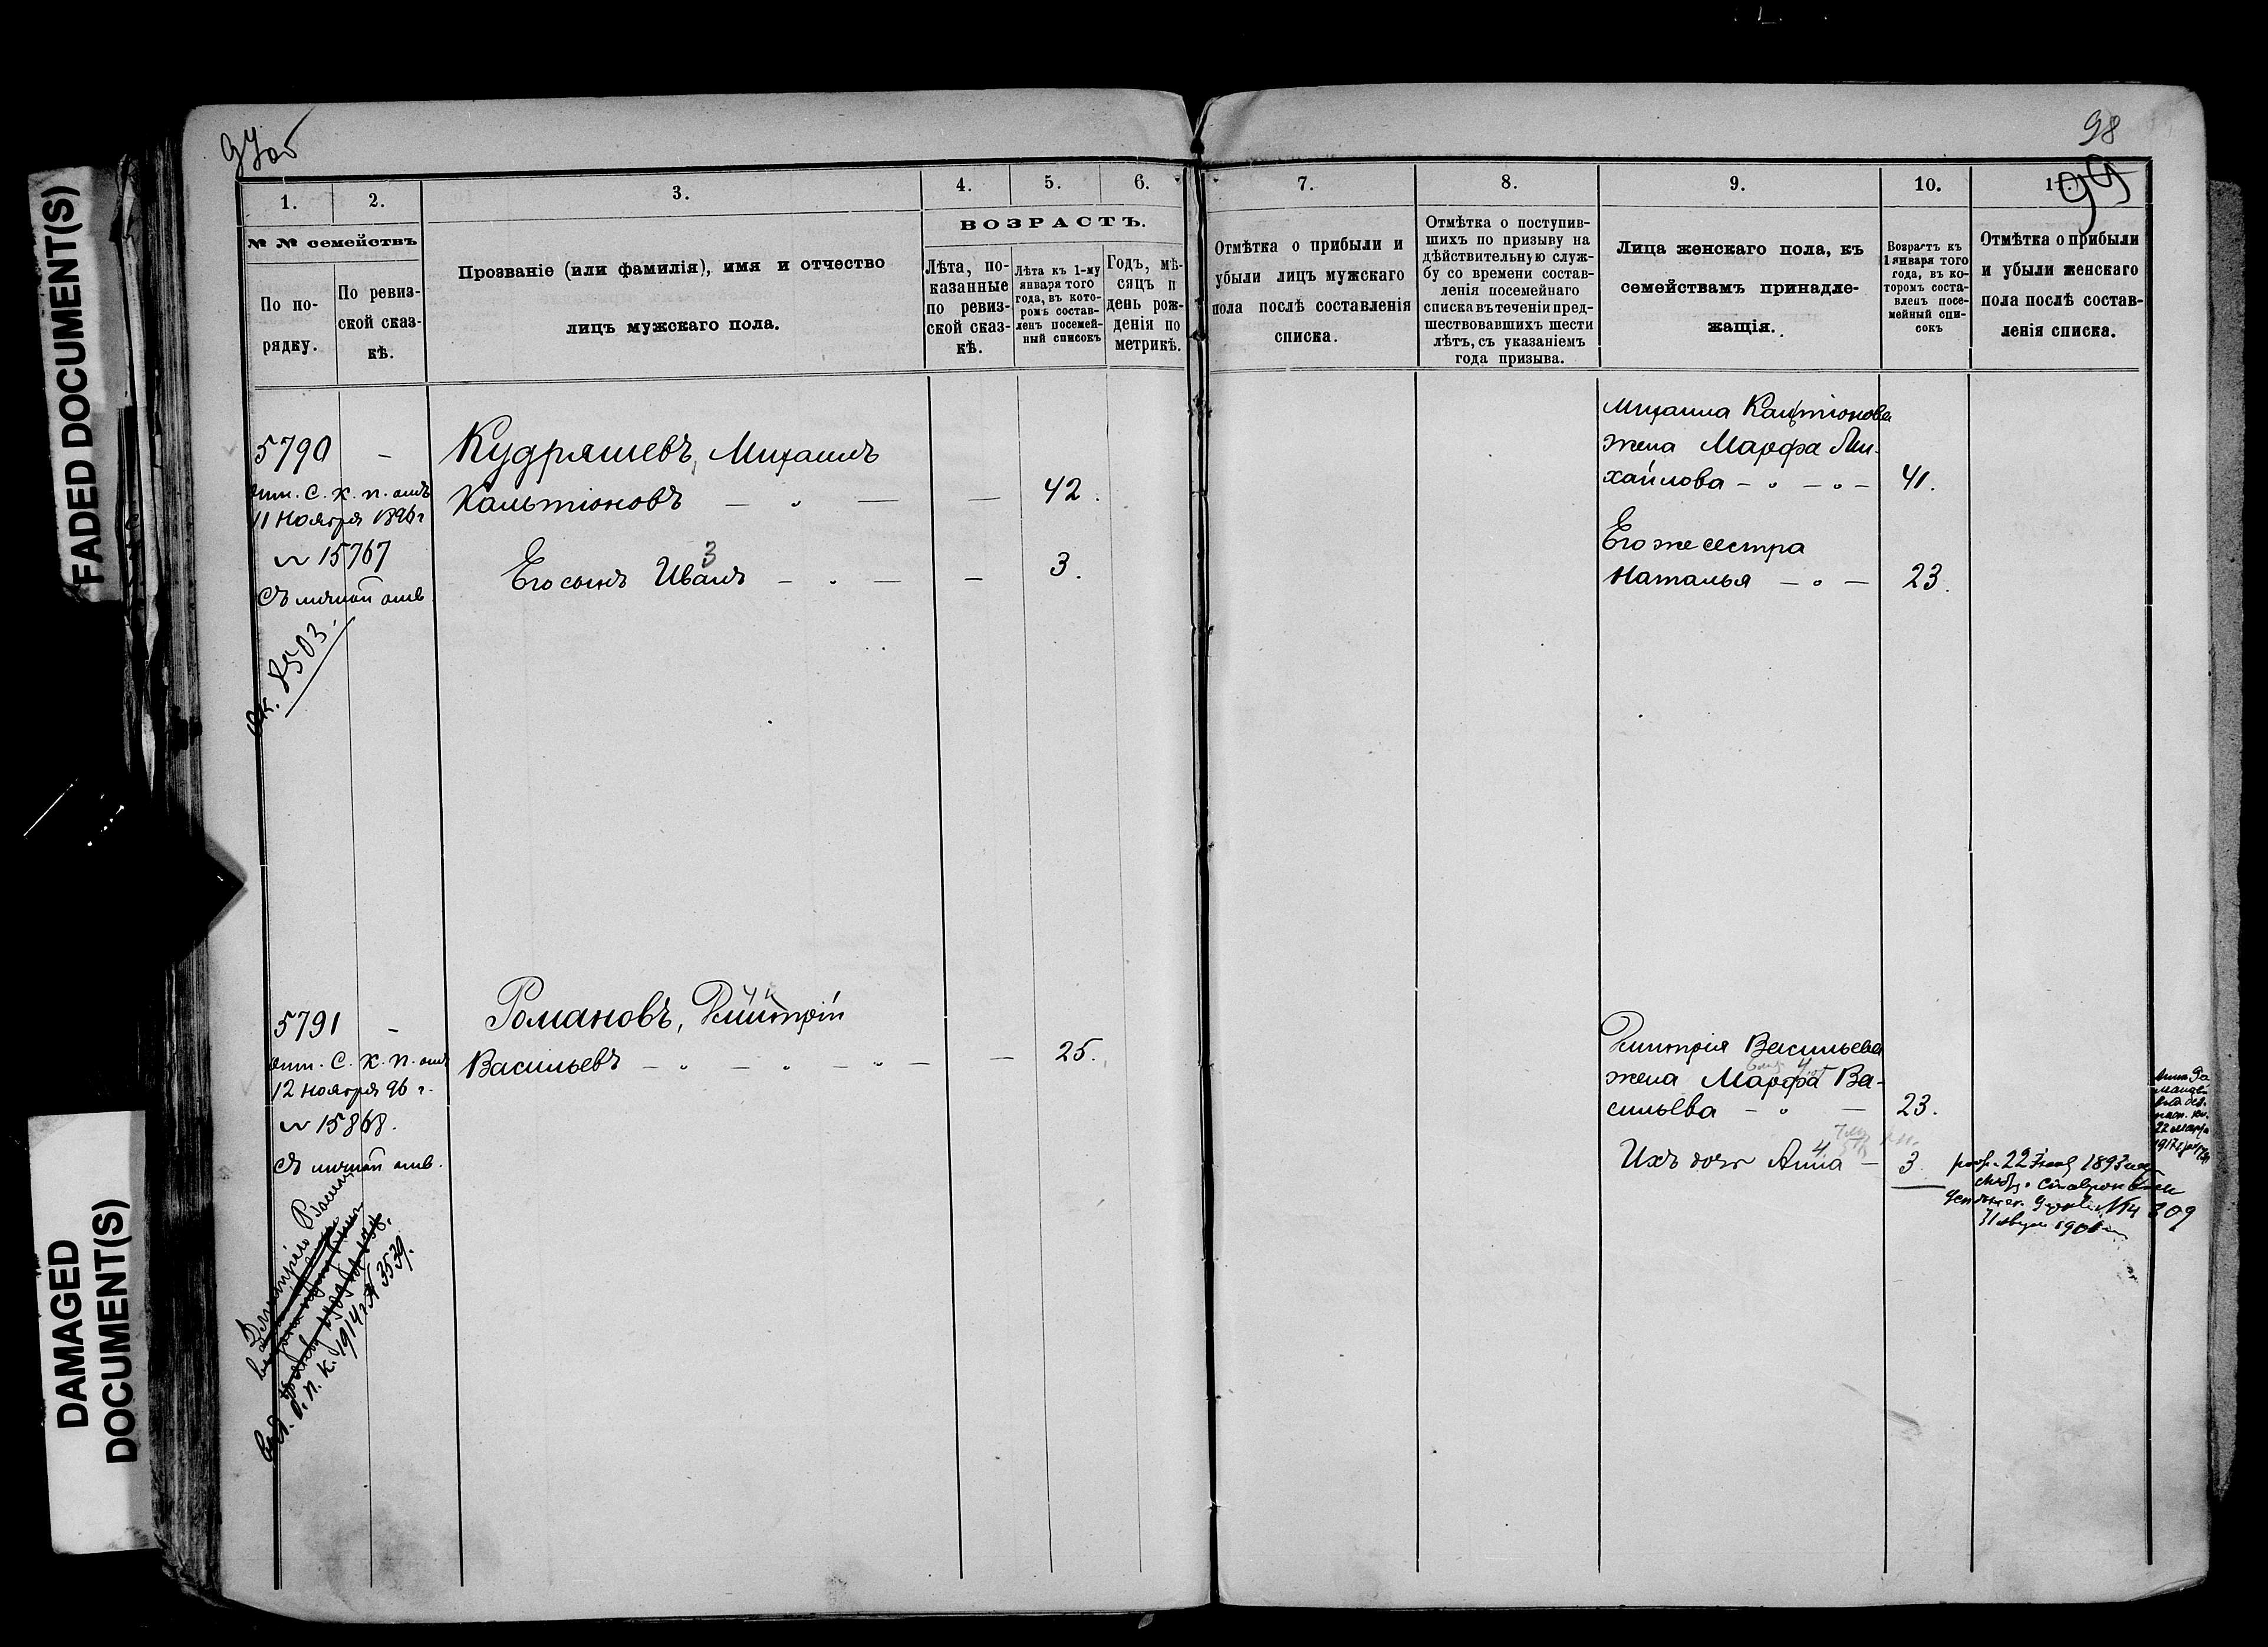 FADED DOCUMENT(S)
DAMAGED
DOCUMENT(S)
97об
98
99
1.
2.
3.
4.
5.
6.
№ № семействъ
По по-
рядку.
По ревиз-
ской сказ-
кѣ.
Прозваніе (или фамилія), имя и отчество
лицъ мужскаго пола.
ВОЗРАСТЪ.
Лѣта, по-
казанные
по ревиз-
ской сказ-
кѣ.
Лѣта къ 1-му
января того
года, въ кото-
ромъ состав-
ленъ посемей-
ный списокъ
Годъ, мѣ-
сяцъ и
день рож-
денія по
метрикѣ.
7.
8.
9.
10.
11.
Отмѣтка о прибыли и
убыли лицъ мужскаго
пола послѣ составленія
списка.
Отмѣтка о поступив-
шихъ по призыву на
дѣйствительную служ-
бу со времени состав-
ленія посемейнаго
списка въ теченіи пред-
шествовавшихъ шести
лѣтъ, съ указаніемъ
года призыва.
Лица женскаго пола, къ
семействамъ принадле-
жащія.
Возрастъ къ
1 января того
года, въ ко-
торомъ соста-
вленъ посе-
мейный спи-
сокъ
Отмѣтка о прибыли
и убыли женскаго
пола послѣ состав-
ленія списка.
5790 -
опт. С. К. п. отъ
11 Ноября 1896 г
№ 15767
съ личной отв.
ок. 8503.
Кудряшевъ, Михаилъ
Кальтіоновъ — " — — 42.
3
Его сынъ Иванъ — " — — 3.
Михаила
жена Марфа Ми-
хайлова — " — " — 41.
Его же сестра
Наталья — " — 23.
5791 -
опт. С. К. п. отъ
12 Ноября 96 г.
№ 15868.
съ личной отв.
Романовъ, Дмитрій
Васильевъ — " — " — " — — 25.
Дмитрія Васильева
жена Марфа Ва-
сильева — " — 23.
Ихъ дочь Анна — 3.
22 1893
22 Марта
1917
309
К. 1914 г. № 3539.